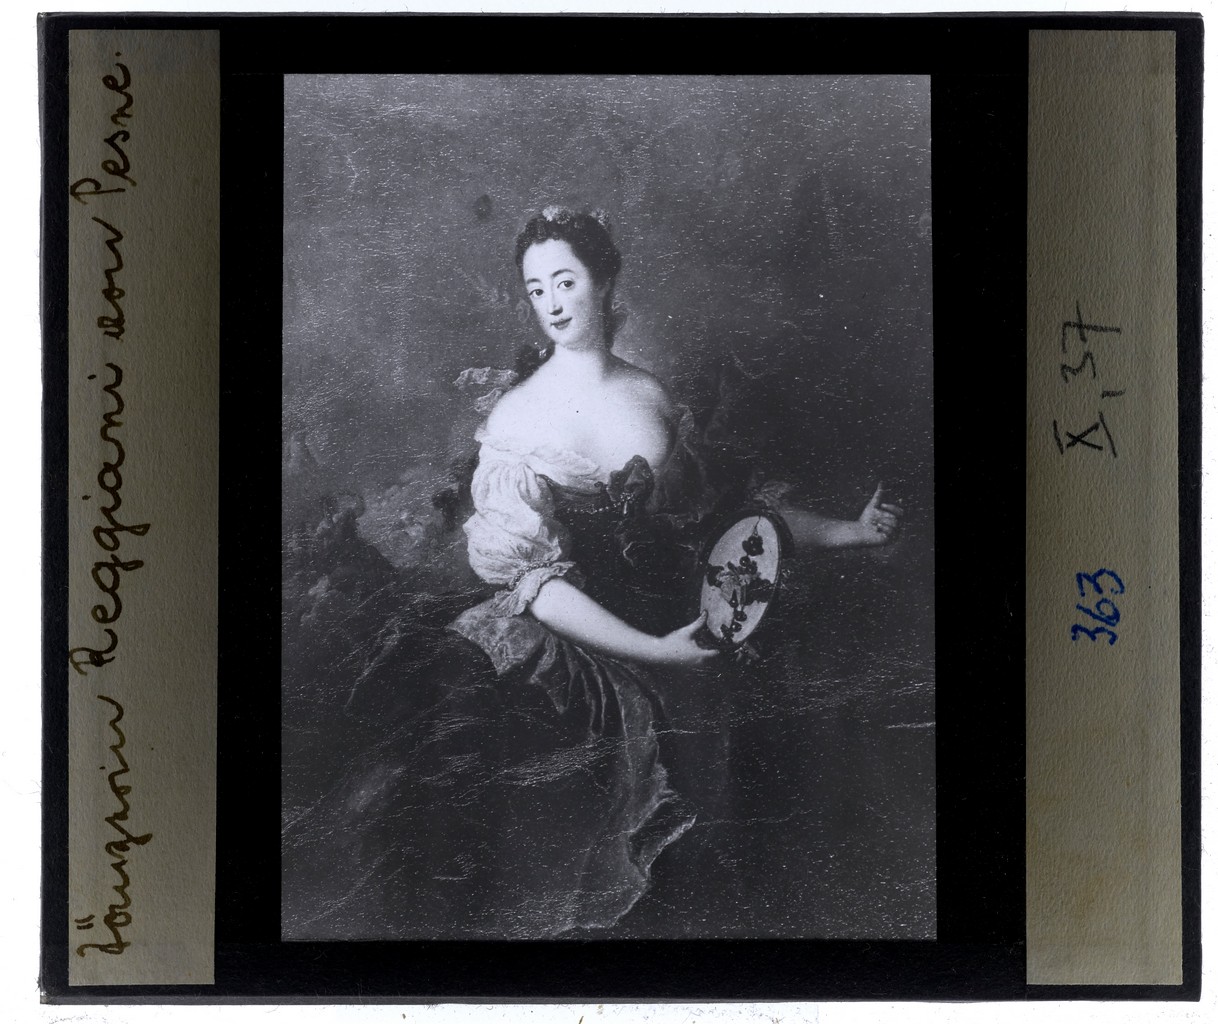 Tänzerin Reggiani von Pesne.
X, 37
363